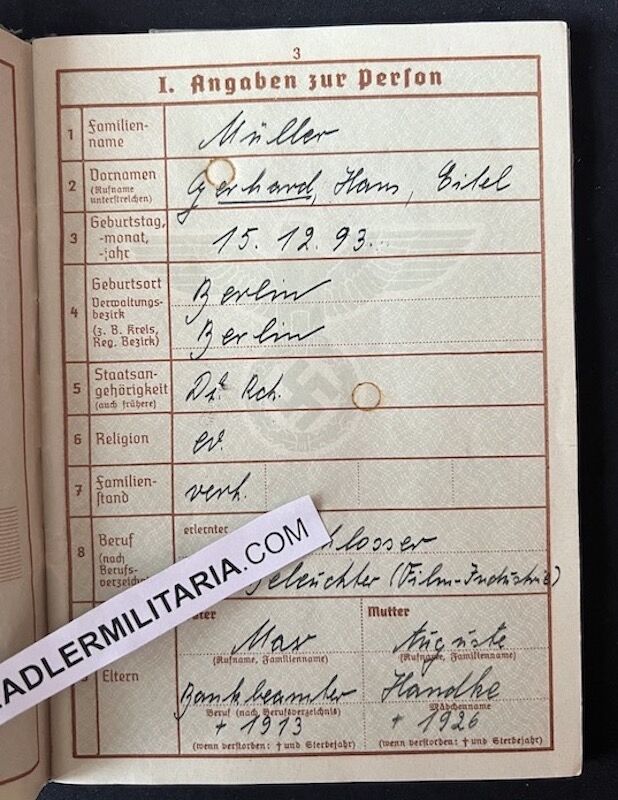 3
I. Angaben zur Person
1 Familien-
name
Müller
2 Vornamen
(Rufname
unterstreichen)
Gerhard, Hans, Eitel
3 Geburtstag,
-monat,
-jahr
15. 12. 93.
4 Geburtsort
Berlin
Verwaltungs-
bezirk
(z. B. Kreis,
Reg. Bezirk)
Berlin
5 Staatsan-
gehörigkeit
(auch frühere)
Dt. Rch.
6 Religion
ev.
7 Familien-
stand
verh.
8 Beruf
(nach
Berufs-
verzeichn
erlernter
hlosser
Beleuchter (Film-Industrie)
ADLERMILITARIA.COM
Eltern
ter
Max
(Rufname, Familienname)
Bankbeamter
Beruf (nach Berufsverzeichnis)
† 1913
(wenn verstorben: † und Sterbejahr)
Mutter
Auguste
(Rufname, Familienname)
Handke
Mädchenname
† 1926
(wenn verstorben: † und Sterbejahr)